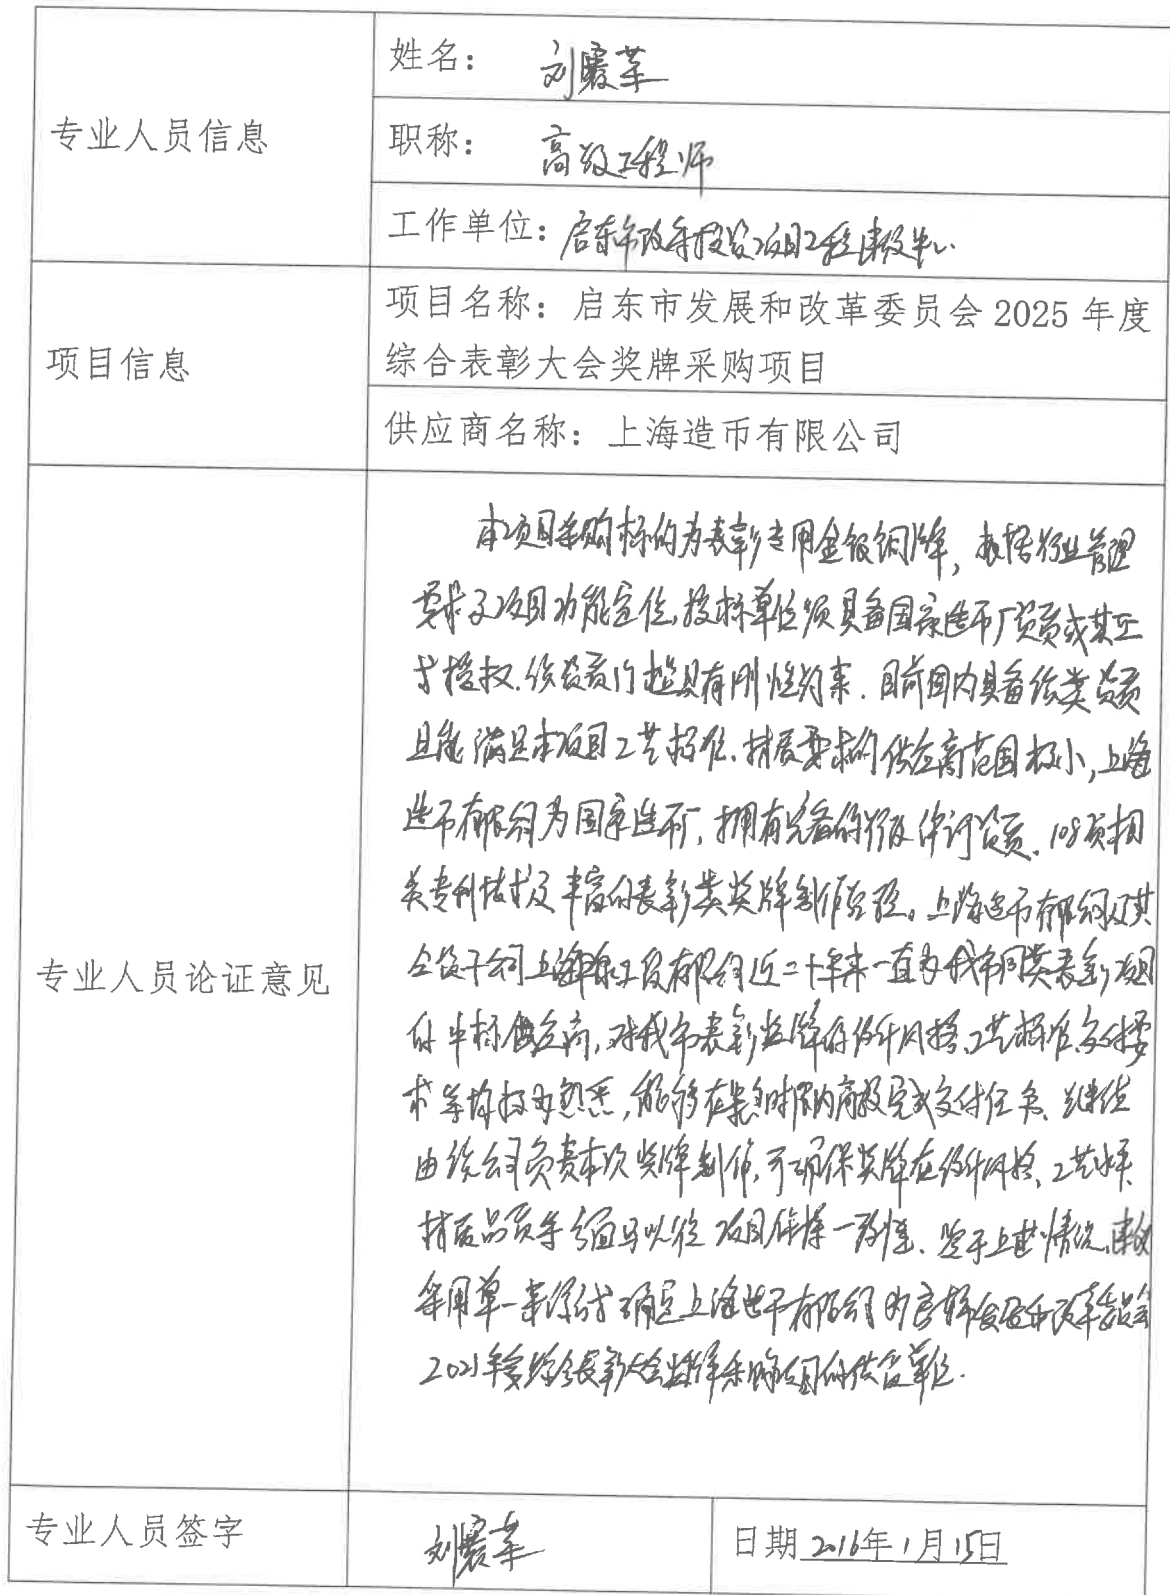 专业人员信息
姓名：刘震菜
职称：高级工程师
工作单位：启东市政府投资项目工程建设中心
项目信息
项目名称：启东市发展和改革委员会 2025 年度
综合表彰大会奖牌采购项目
供应商名称：上海造币有限公司
专业人员论证意见
本项目采购标的为表彰专用金银铜牌，根据行业管理
要求及项目功能定位，投标单位须具备国家造币厂资质或其正
式授权，该资质门槛具有刚性约束，目前国内具备该类资质
且能满足本项目工艺标准、材质要求的供应商范围极小，上海
造币有限公司为国家造币厂，拥有完备的行政许可资质、108项相
关专利技术及丰富的表彰类奖牌制作经验。上海造币有限公司及其
全资子公司上海 有限公司近二十年来一直为我市同类表彰项目
的中标供应商，对我市表彰奖牌的设计风格、工艺标准、交付要
求等均极为熟悉，能够在紧急时限内高效完成交付任务、继续
由该公司负责本次奖牌制作，可确保奖牌在设计风格、工艺水平、
材质品质等方面与以往项目保持一致性、鉴于上述情况，建议
采用单一来源方式确定上海造币有限公司为启东市发展和改革委员会
2025年度综合表彰大会奖牌采购项目的供应单位.
专业人员签字
刘震菜
日期 2016年1月15日